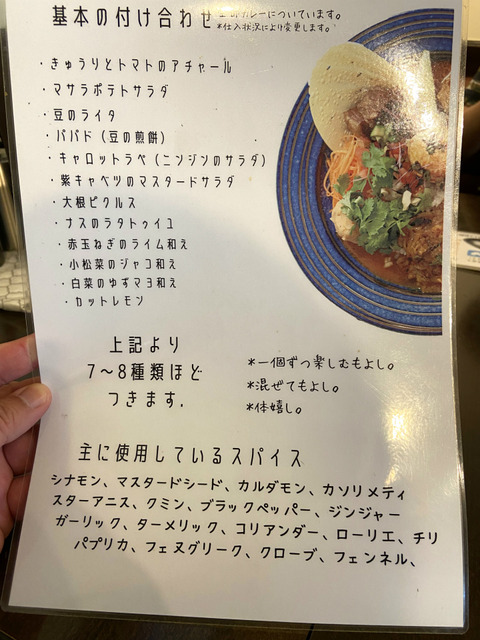 基本の付け合わせ
カレーについています。
*仕入状況により変更します。
・きゅうりとトマトのアチャール
・マサラポテトサラダ
・豆のライタ
・パパド（豆の煎餅）
・キャロットラペ（ニンジンのサラダ）
・紫キャベツのマスタードサラダ
・大根ピクルス
・ナスのラタトゥイユ
・赤玉ねぎのライム和え
・小松菜のジャコ和え
・白菜のゆずマヨ和え
・カットレモン
上記より
7〜8種類ほど
つきます.
*一個ずつ楽しむもよし。
*混ぜてもよし。
*体嬉し。
主に使用しているスパイス
シナモン、マスタードシード、カルダモン、カソリメティ
スターアニス、クミン、ブラックペッパー、ジンジャー
ガーリック、ターメリック、コリアンダー、ローリエ、チリ
パプリカ、フェヌグリーク、クローブ、フェンネル、